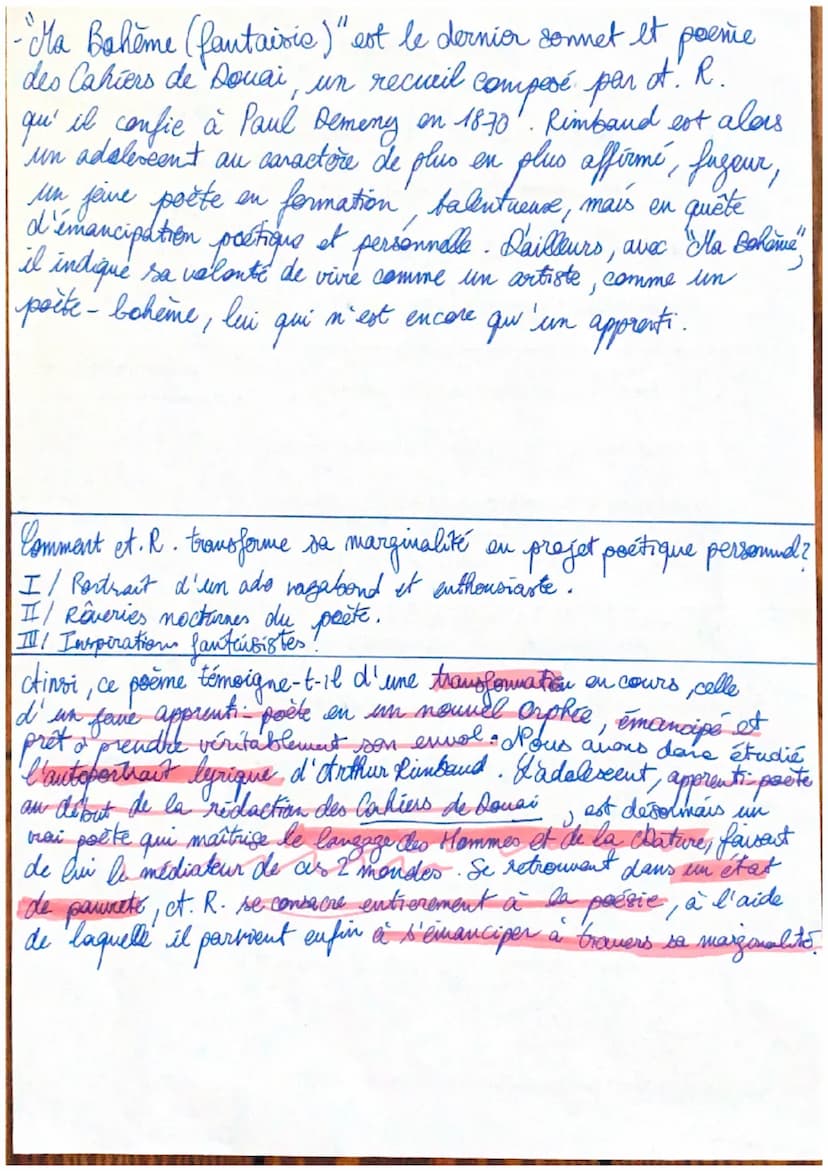 - "Ma Bohème (fantaisie)" est le dernier sonnet et poème
des Cahiers de Douai, un recueil composé par A. R.
qu'il confie à Paul Demeny en 1870. Rimbaud est alors
un adolescent au caractère de plus en plus affirmé, fugeur,
un jeune poète en formation, talentueuse, mais en quête
d'émancipation poétique et personnelle. D'ailleurs, avec "Ma Bohème",
il indique sa volonté de vivre comme un artiste, comme un
poète-bohème, lui qui n'est encore qu'un apprenti.
Comment A. R. transforme sa marginalité en projet poétique personnel?
I / Portrait d'un ado vagabond et enthousiaste.
II / Rêveries nocturnes du poète.
III / Inspirations fantaisistes.
Ainsi, ce poème témoigne-t-il d'une transformation en cours, celle
d'un jeune apprenti-poète en un nouvel Orphée, émancipé et
prêt à prendre véritablement son envol. Nous avons donc étudié
l'autoportrait lyrique d'Arthur Rimbaud. L'adolescent, apprenti-poète
au début de la rédaction des Cahiers de Douai, est désormais un
vrai poète qui maîtrise le langage des Hommes et de la Nature, faisant
de lui le médiateur de ces 2 mondes. Se retrouvant dans un état
de pauvreté, A. R. se consacre entièrement à la poésie, à l'aide
de laquelle il parvient enfin à s'émanciper à travers sa marginalité.